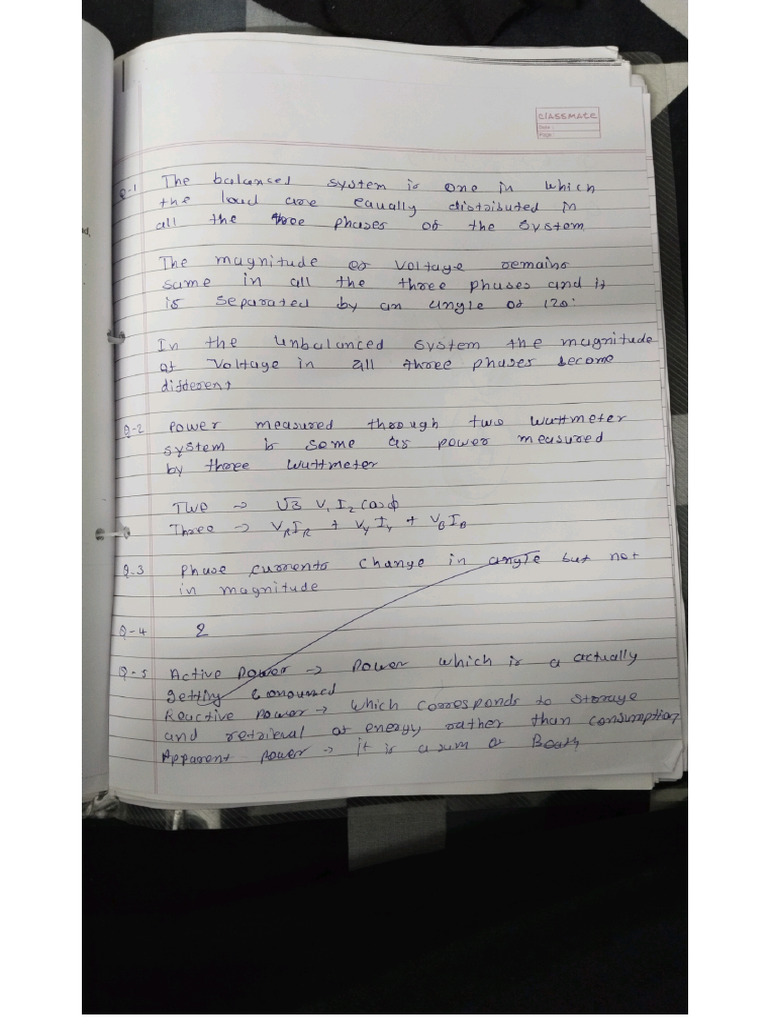 classmate
Date :
Page :
Q-1 The balanced system is one in which
the load are equally distributed in
all the three phases of the system
The magnitude of voltage remains
same in all the three phases and it
is separated by an angle of 120°
In the unbalanced system the magnitude
of voltage in all three phases become
different
Q-2 Power measured through two wattmeter
system is same as power measured
by three wattmeter
Two → √3 V, I cosφ
Three → VRIR + VYIY + VBIB
Q.3 Phase currents change in angle but not
in magnitude
Q-4 2
Q-5 Active power → Power which is a actually
getting
Reactive power → which corresponds to storage
and retrieval of energy rather than consumption
Apparent power → it is a sum of Boath